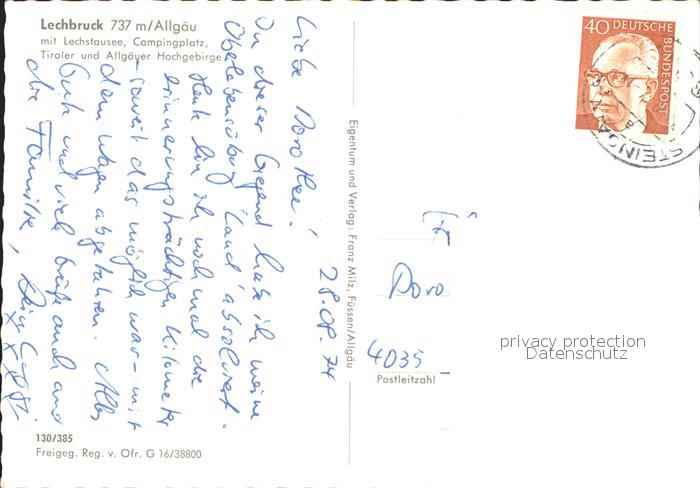 Lechbruck 737 m/Allgäu
mit Lechstausee, Campingplatz,
Tiroler und Allgäuer Hochgebirge
Liebe Dorothee!
In dieser Gegend habe ich meine
Überlebensübung "Land" absolviert.
Heute bin ich noch mal die
erinnerungsträchtigen Kilometer
- soweit das möglich war - mit
dem Wagen abgefahren. Alles
Gute und viele Grüße auch an
die Familie,
28.08.74
130/385
Freigeg. Reg. v. Ofr. G 16/38800
Eigentum und Verlag: Franz Milz, Füssen/Allgäu
40 DEUTSCHE
BUNDESPOST
STEINGADEN
Doro
4035
Postleitzahl
privacy protection
Datenschutz